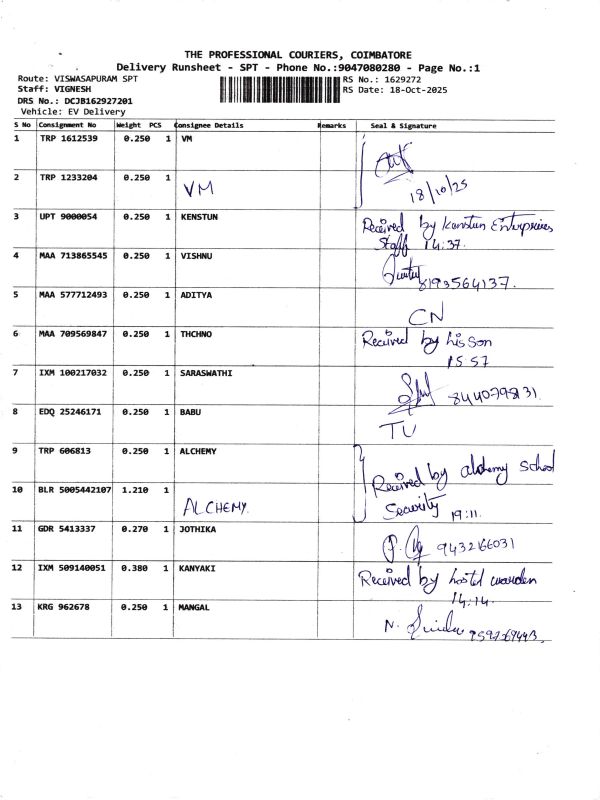 THE PROFESSIONAL COURIERS, COIMBATORE
Delivery Runsheet - SPT - Phone No.:9047080280 - Page No.:1
Route: VISWASAPURAM SPT RS No.: 1629272
Staff: VIGNESH RS Date: 18-Oct-2025
DRS No.: DCJB162927201
Vehicle: EV Delivery
S No Consignment No Weight PCS Consignee Details Remarks Seal & Signature
1 TRP 1612539 0.250 1 VM
2 TRP 1233204 0.250 1 VM 18/10/25
3 UPT 9000054 0.250 1 KENSTUN Received by Kenstun Enterprises
Staff 14:37.
4 MAA 713865545 0.250 1 VISHNU 8193564137.
5 MAA 577712493 0.250 1 ADITYA CN
6 MAA 709569847 0.250 1 THCHNO Received by his son
15:57
7 IXM 100217032 0.250 1 SARASWATHI
8 EDQ 25246171 0.250 1 BABU TU
9 TRP 606813 0.250 1 ALCHEMY Received by alchemy School
10 BLR 5005442107 1.210 1 ALCHEMY. Security 19:11.
11 GDR 5413337 0.270 1 JOTHIKA 9432166031
12 IXM 509140051 0.380 1 KANYAKI Received by hostel warden
14:14.
13 KRG 962678 0.250 1 MANGAL N.